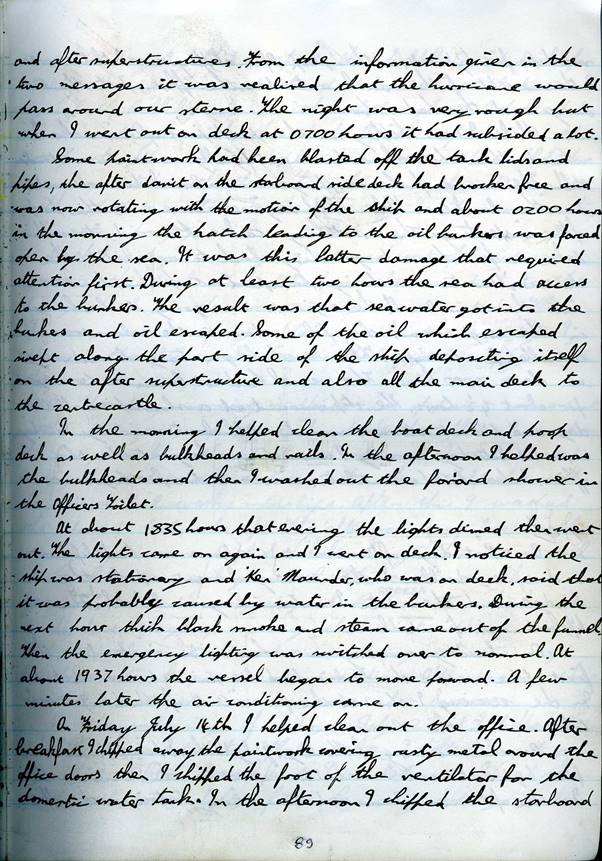 and after superstructures. From the information given in the
two messages it was realised that the hurricane would
pass around our sterne. The night was very rough but
when I went out on deck at 0700 hours it had subsided a lot.
Some paintwork had been blasted off the tank lids and
pipes, the after davit on the starboard side deck had brocken free and
was now rotating with the motion of the ship and about 0200 hours
in the morning the hatch leading to the oil bunkers was forced
open by the sea. It was this latter damage that required
attention first. During at least two hours the sea had access
to the bunkers. The result was that sea water got into the
bunkers and oil escaped. Some of the oil which escaped
swept along the port side of the ship depositing itself
on the after superstructure and also all the main deck to
the centrecastle.
In the morning I helped clean the boat deck and poop
deck as well as bulkheads and rails. In the afternoon I helped was
the bulkheads and then I washed out the for'ard shower in
the Officers Toilet.
At about 1835 hours that evening the lights dimed then went
out. The lights came on again and I went on deck. I noticed the
ship was stationary and Ken Maunder, who was on deck, said that
it was probably caused by water in the bunkers. During the
next hour thick black smoke and steam came out of the funnel.
Then the emergency lighting was switched over to normal. At
about 1937 hours the vessel began to move forward. A few
minutes later the air conditioning came on.
On Friday July 14th I helped clean out the office. After
breakfast I chipped away the paintwork covering rusty metal around the
office doors then I chipped the foot of the ventilator for the
domestic water tank. In the afternoon I chipped the starboard
89